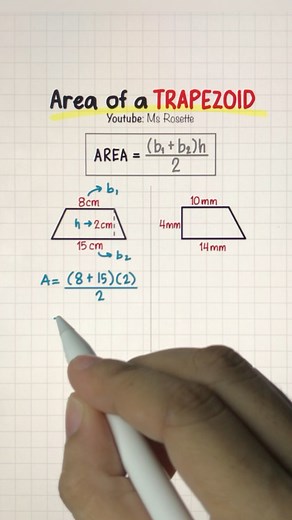 Area of a TRAPEZOID
Youtube: Ms Rosette
AREA = (b₁ + b₂)h / 2
→ b₁
8cm
h → 2cm
15 cm
→ b₂
A = (8 + 15)(2) / 2
10mm
4mm
14mm